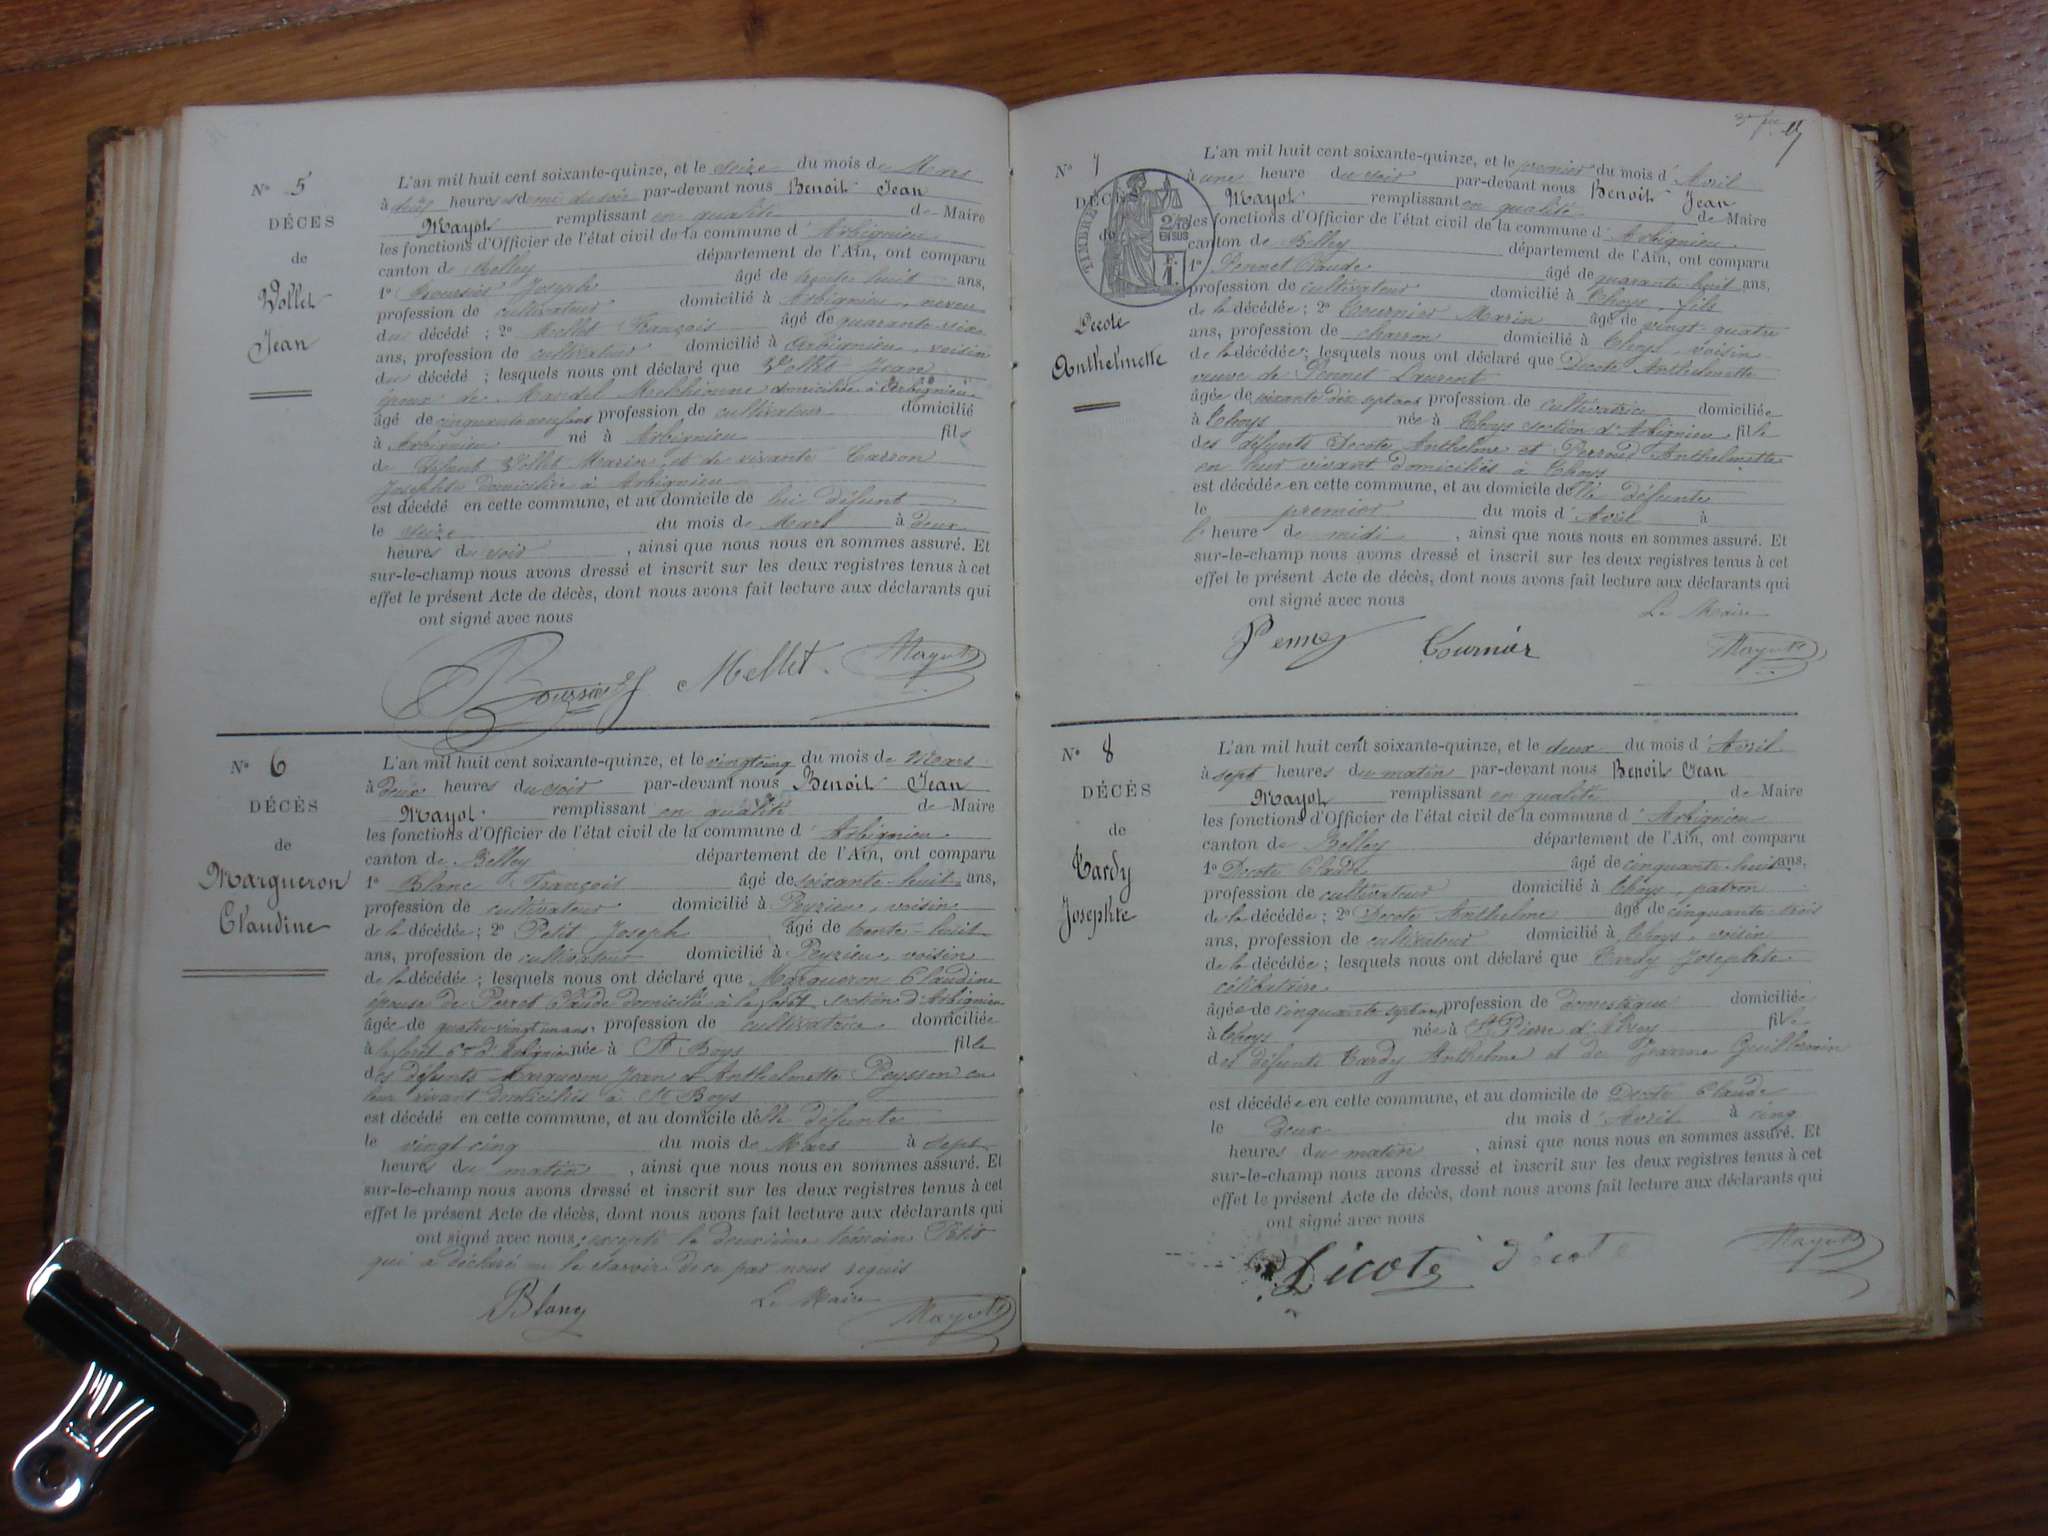 N° 5
DÉCES
de
Vollet
Jean
L'an mil huit cent soixante-quinze, et le seize du mois de Mars
à deux heures et demi du soir par-devant nous Benoit Jean
Mayot remplissant en qualité de Maire
les fonctions d'Officier de l'état civil de la commune d'Arbignieu
canton de Belley département de l'Ain, ont comparu
1° Boursier Joseph âgé de trente huit ans,
profession de cultivateur domicilié à Arbignieu, neveu
du décédé ; 2° Mellet François âgé de quarante six
ans, profession de cultivateur domicilié à Arbignieu, voisin
du décédé ; lesquels nous ont déclaré que Vollet Jean
époux de domiciliée à Arbignieu
âgé de cinquante neuf ans profession de cultivateur domicilié
à Arbignieu né à Arbignieu fils
de défunt Vollet Marin et de vivante Carron
Josephte domiciliée à Arbignieu
est décédé en cette commune, et au domicile de lui défunt
le seize du mois de Mars à deux
heures du soir , ainsi que nous nous en sommes assuré. Et
sur-le-champ nous avons dressé et inscrit sur les deux registres tenus à cet
effet le présent Acte de décès, dont nous avons fait lecture aux déclarants qui
ont signé avec nous
Boursier J Mellet. Mayot
N° 6
DÉCÈS
de
Margueron
Claudine
L'an mil huit cent soixante-quinze, et le vingt cinq du mois de Mars
à Deux heures du soir par-devant nous Benoit Jean
Mayot remplissant en qualité de Maire
les fonctions d'Officier de l'état civil de la commune d'Arbignieu
canton de Belley département de l'Ain, ont comparu
1° Blanc François âgé de soixante-huit ans,
profession de cultivateur domicilié à Peyzieu, voisin
de la décédée ; 2° Petit Joseph âgé de trente-huit
ans, profession de cultivateur domicilié à Peyzieu, voisin
de la décédée ; lesquels nous ont déclaré que Margueron Claudine
épouse de Perret Claude domicilié à la forêt, section d'Arbignieu
âgée de quatre vingt un ans, profession de cultivatrice domiciliée
à la forêt d'Arbignieu née à St Boys fille
des défunts Margueron Jean et Anthelmette Peysson en
leur vivant domiciliés à St Boys
est décédé en cette commune, et au domicile d'elle défunte
le vingt cinq du mois de Mars à sept
heures du matin , ainsi que nous nous en sommes assuré. Et
sur-le-champ nous avons dressé et inscrit sur les deux registres tenus à cet
effet le présent Acte de décès, dont nous avons fait lecture aux déclarants qui
ont signé avec nous, excepté le deuxième témoin Petit
qui a déclaré ne le savoir de ce par nous requis
Le Maire
Blanc Mayot
N° 7
DÉCÈS
de
TIMBRE
2/10
EN SUS
F. 1
Decote
Anthelmette
L'an mil huit cent soixante-quinze, et le premier du mois d'Avril
à une heure du soir par-devant nous Benoit Jean
Mayot remplissant en qualité de Maire
les fonctions d'Officier de l'état civil de la commune d'Arbignieu
canton de Belley département de l'Ain, ont comparu
1° Pennet Claude âgé de quarante huit ans,
profession de cultivateur domicilié à Thoys, fils
de la décédée ; 2° Tournier Marin âgé de vingt-quatre
ans, profession de charron domicilié à Thoys, voisin
de la décédée ; lesquels nous ont déclaré que Decote Anthelmette
veuve de Pennet Laurent
âgée de soixante dix sept ans profession de cultivatrice domiciliée
à Thoys née à Thoys section d'Arbignieu fille
des défunts Decote Anthelme et Perroud Anthelmette
en leur vivant domiciliés à Thoys
est décédée en cette commune, et au domicile d'elle défunte
le premier du mois d'Avril à
l'heure de midi , ainsi que nous nous en sommes assuré. Et
sur-le-champ nous avons dressé et inscrit sur les deux registres tenus à cet
effet le présent Acte de décès, dont nous avons fait lecture aux déclarants qui
ont signé avec nous
Le Maire
Pennet Tournier Mayot
N° 8
DÉCÈS
de
Tardy
Josephte
L'an mil huit cent soixante-quinze, et le deux du mois d'Avril
à sept heures du matin par-devant nous Benoit Jean
Mayot remplissant en qualité de Maire
les fonctions d'Officier de l'état civil de la commune d'Arbignieu
canton de Belley département de l'Ain, ont comparu
1° Decote Claude âgé de cinquante-huit ans,
profession de cultivateur domicilié à Thoys, patron
de la décédée ; 2° Decote Anthelme âgé de cinquante-trois
ans, profession de cultivateur domicilié à Thoys, voisin
de la décédée ; lesquels nous ont déclaré que Tardy Josephte
célibataire
âgée de cinquante sept ans profession de domestique domiciliée
à Thoys née à St Pierre d' fille
des défunts Tardy Anthelme et de Jeanne Guillermin
est décédée en cette commune, et au domicile de Decote Claude
le Deux du mois d'Avril à cinq
heures du matin , ainsi que nous nous en sommes assuré. Et
sur-le-champ nous avons dressé et inscrit sur les deux registres tenus à cet
effet le présent Acte de décès, dont nous avons fait lecture aux déclarants qui
ont signé avec nous
Decote Decote Mayot